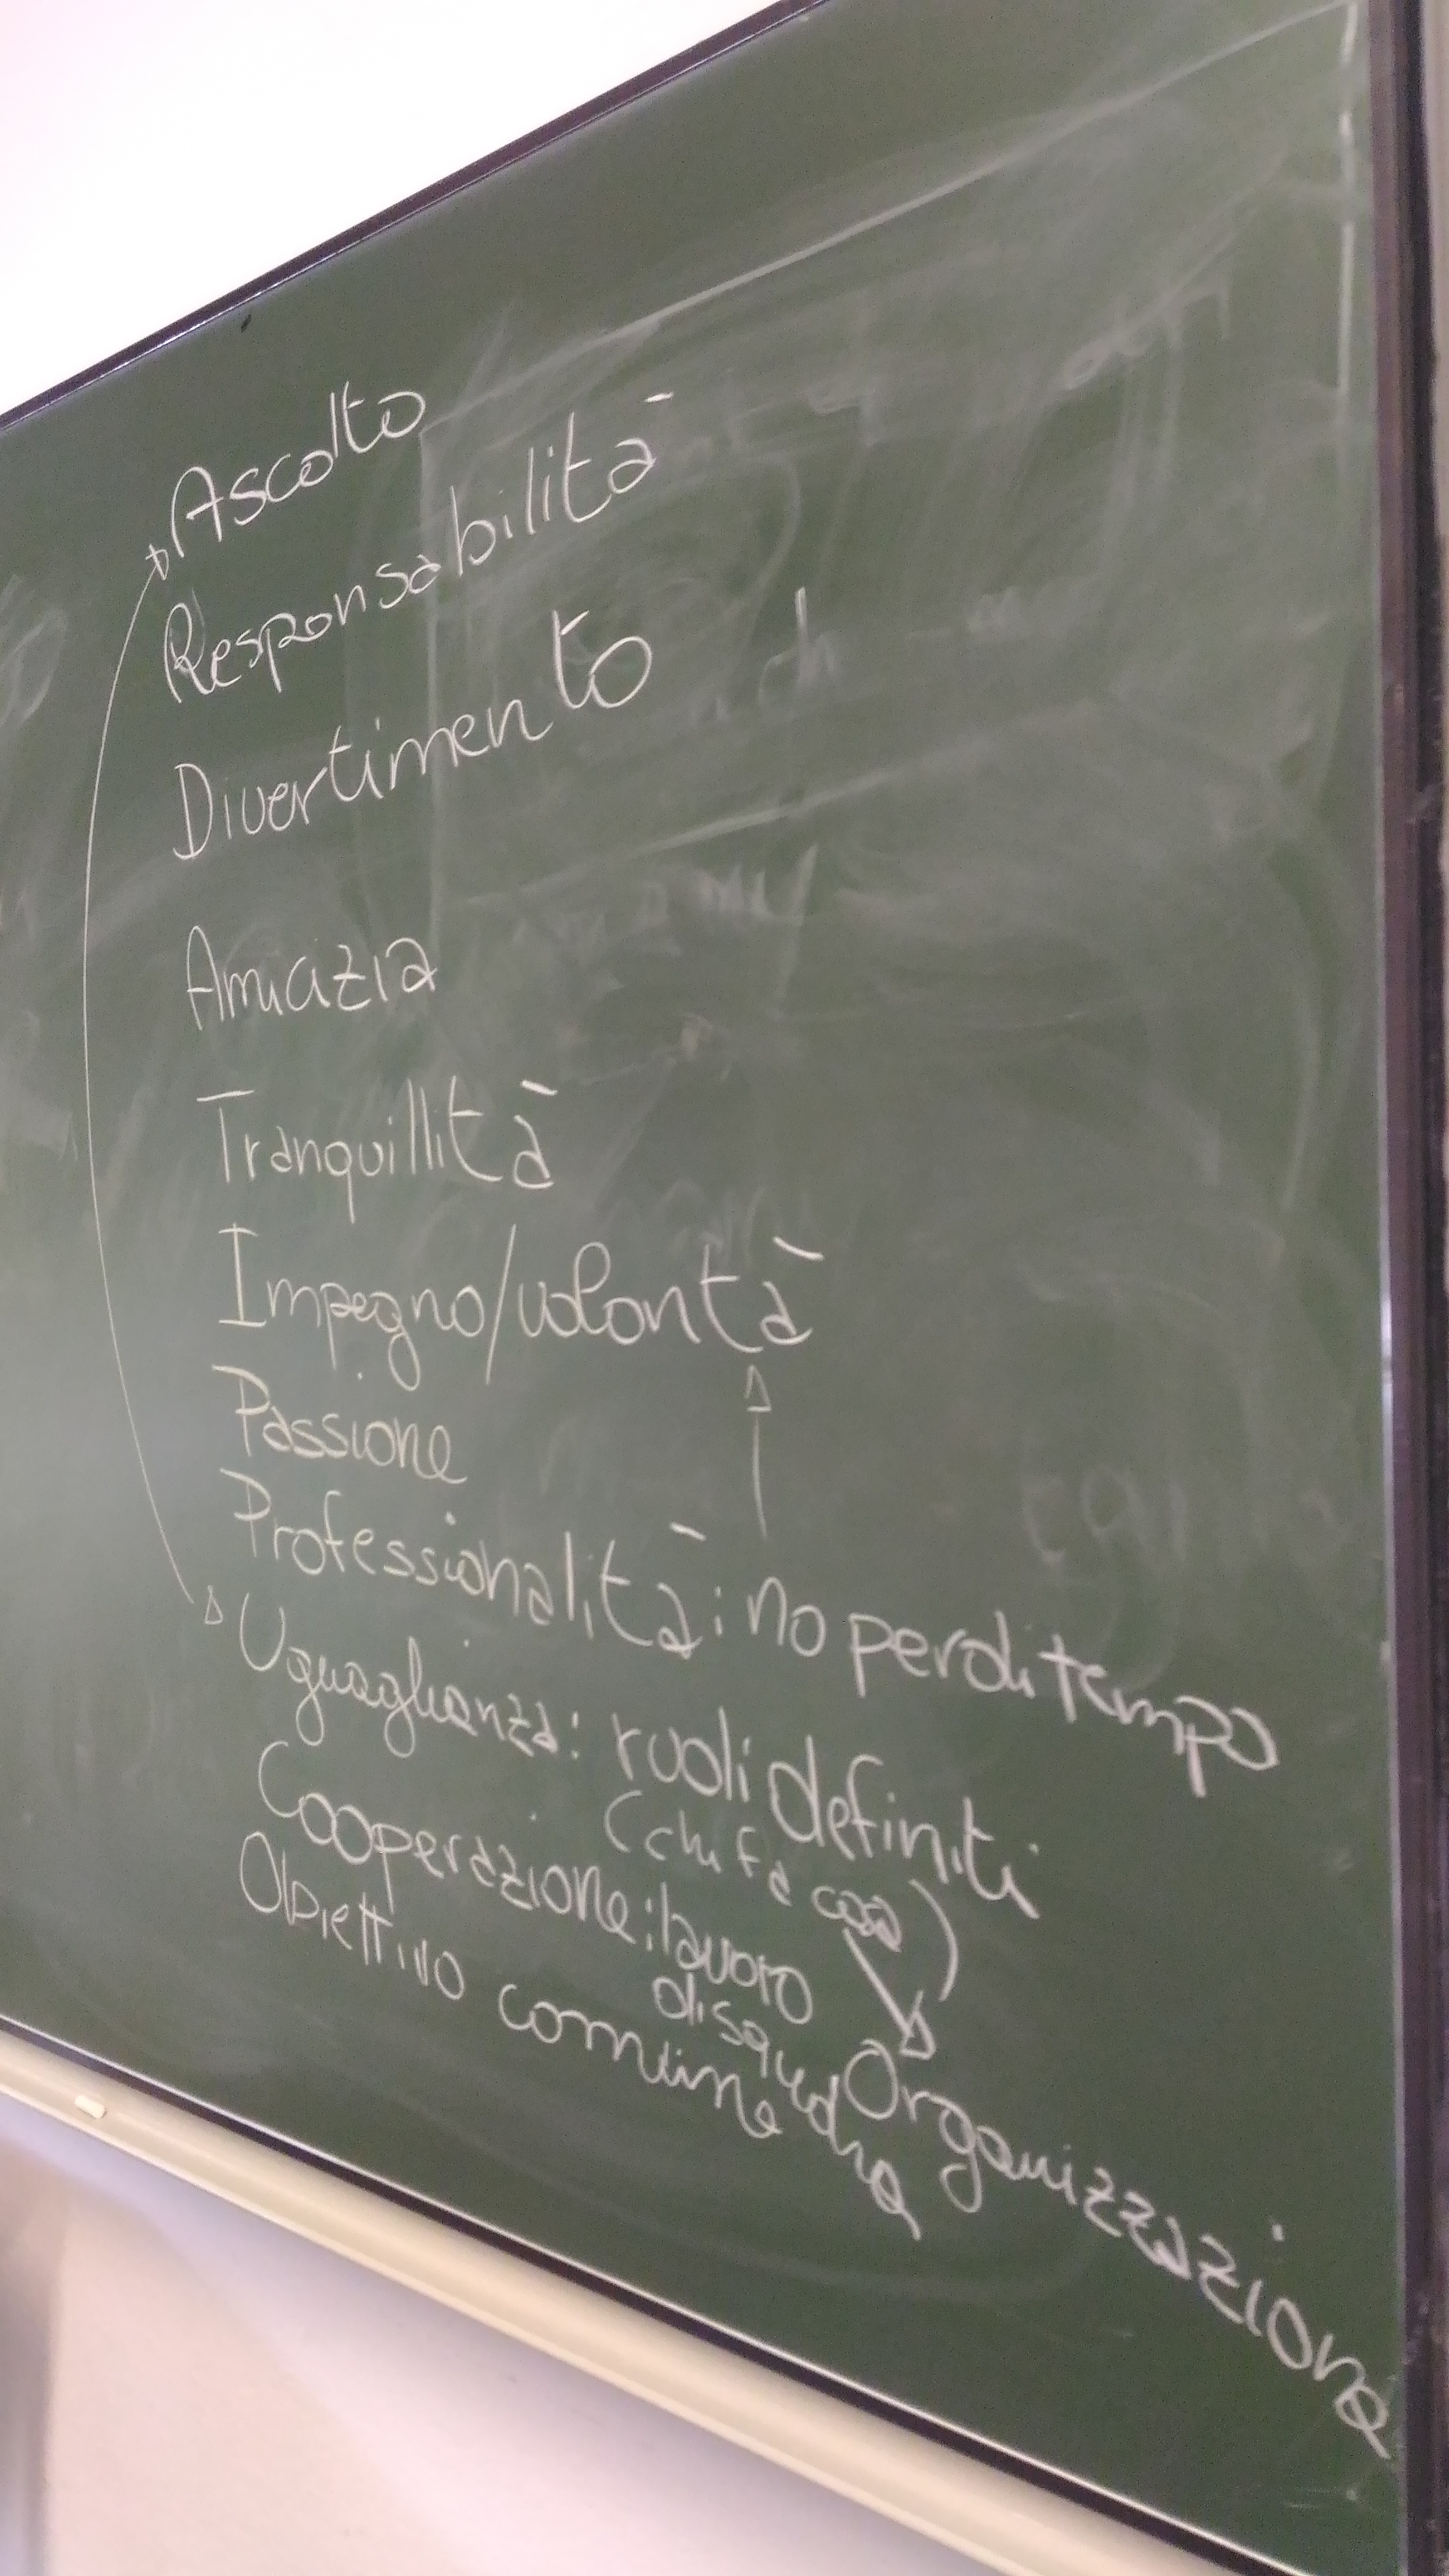 Ascolto
Responsabilità
Divertimento
Amicizia
Tranquillità
Impegno/volontà
Passione
Professionalità: no perditempo
Uguaglianza: ruoli definiti
(chi fa cosa)
Cooperazione: lavoro
di squadra
Organizzazione
Obiettivo comune